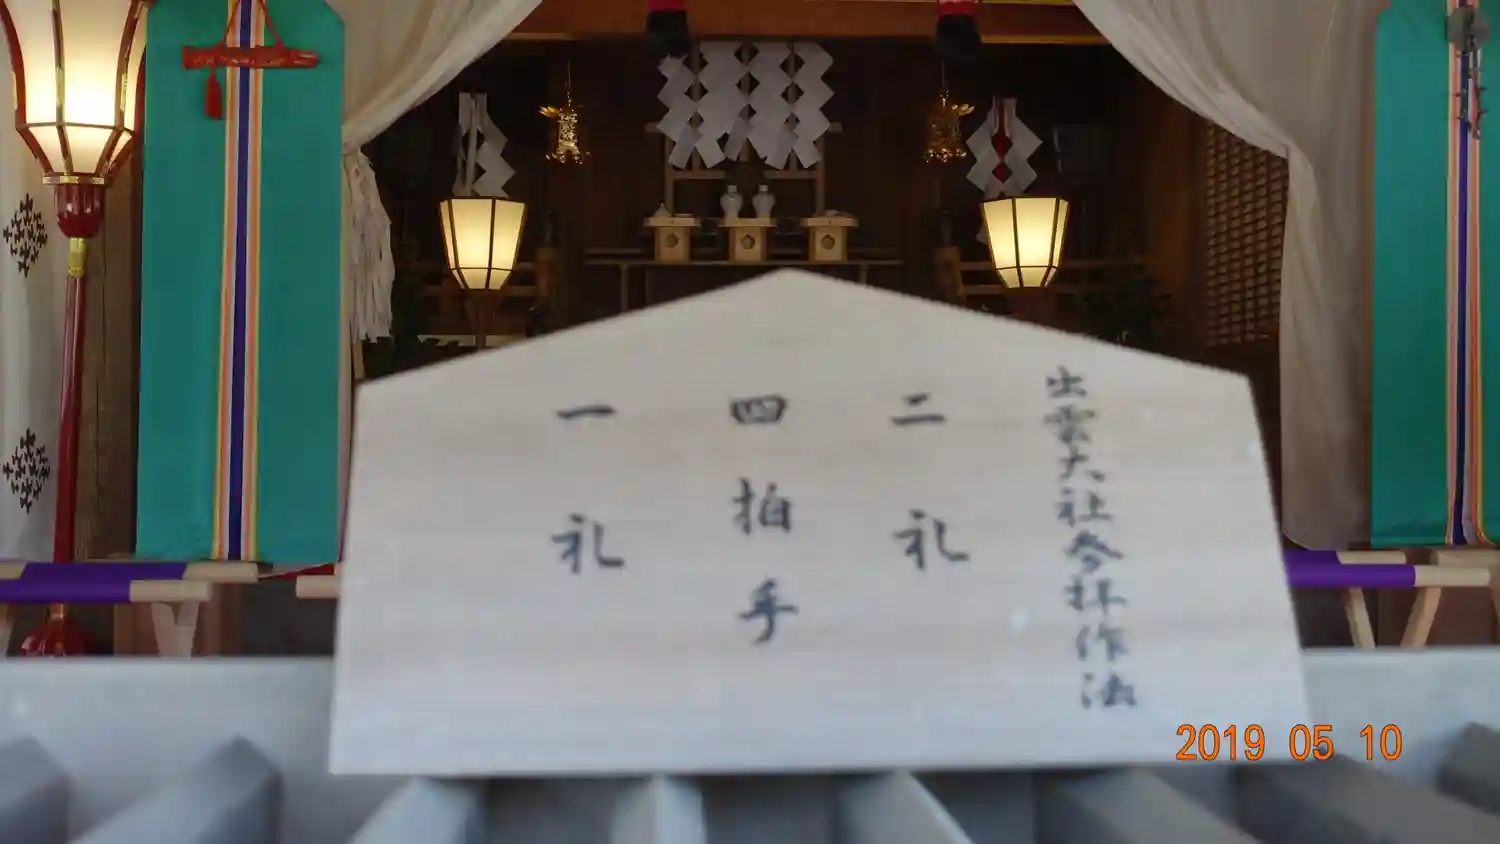 出雲大社参拝作法
二礼
四拍手
一礼
2019 05 10